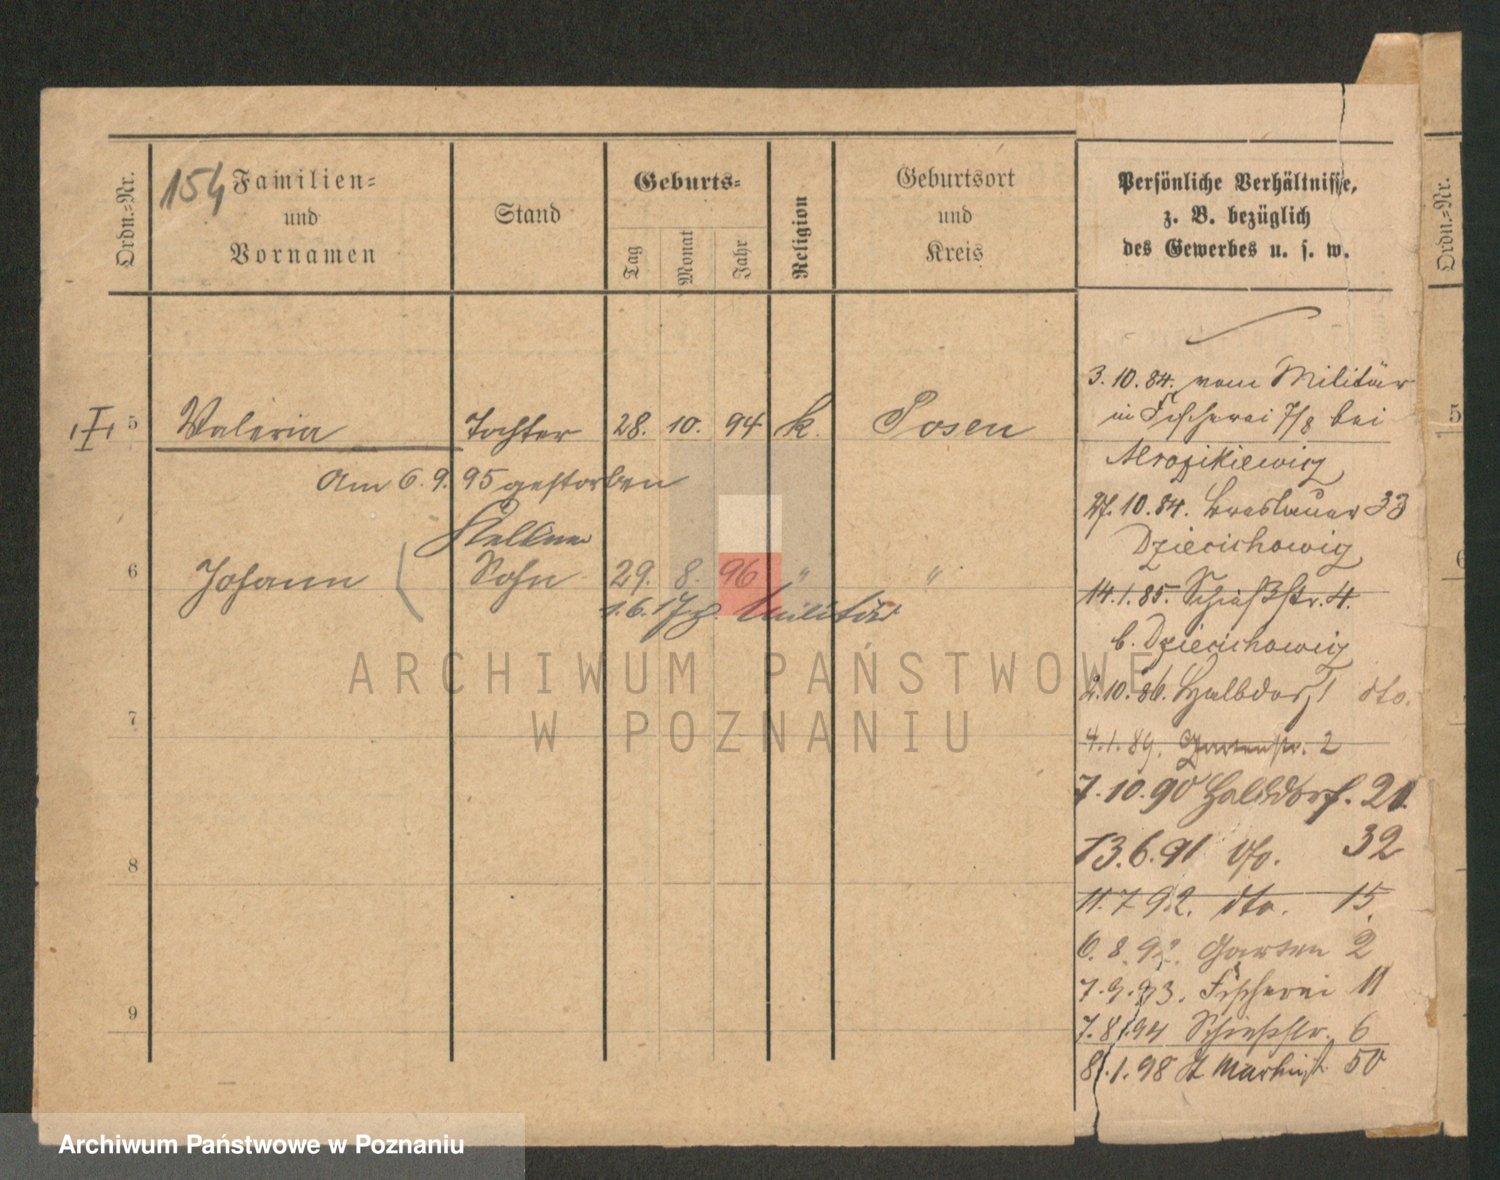 154
Ordn.-Nr.
Familien-
und
Vornamen
Stand
Geburts-
Tag
Monat
Jahr
Religion
Geburtsort
und
Kreis
Persönliche Verhältnisse,
z. B. bezüglich
des Gewerbes u. s. w.
Ordn.-Nr.
5 Valeria Tochter 28. 10. 94 k. Posen
Am 6. 9. 95 gestorben
Kellner
6 Johann Sohn 29. 8. 96 " "
1. 6. 17 z. Militär
7
8
9
3. 10. 84. vom Militär
in Fischerei 7/8 bei
27. 10. 84. Breslauer 33
Dziecichowicz
14. 1. 85. Schießstr. 4.
b. Dziecichowicz
2. 10. 86. Halbdorf 1 dto.
4. 1. 89. Gartenstr. 2
7. 10. 90 Halbdorf. 21
13. 6. 91 dto. 32
11. 7 92. dto. 15.
6. 8. 92. Garten 2
7. 9. 93. Fischerei 11
7. 8. 94 Schießstr. 6
8. 1. 98 St Martinst. 50
5
6
ARCHIWUM PAŃSTWOWE
W POZNANIU
Archiwum Państwowe w Poznaniu